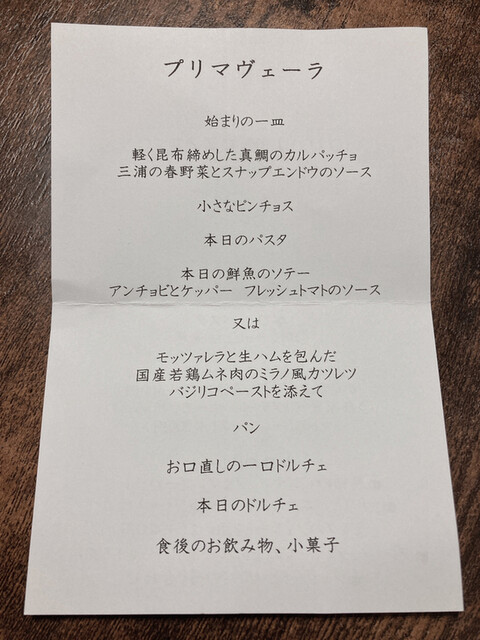 プリマヴェーラ
始まりの一皿
軽く昆布締めした真鯛のカルパッチョ
三浦の春野菜とスナップエンドウのソース
小さなピンチョス
本日のパスタ
本日の鮮魚のソテー
アンチョビとケッパー　フレッシュトマトのソース
又は
モッツァレラと生ハムを包んだ
国産若鶏ムネ肉のミラノ風カツレツ
バジリコペーストを添えて
パン
お口直しの一口ドルチェ
本日のドルチェ
食後のお飲み物、小菓子